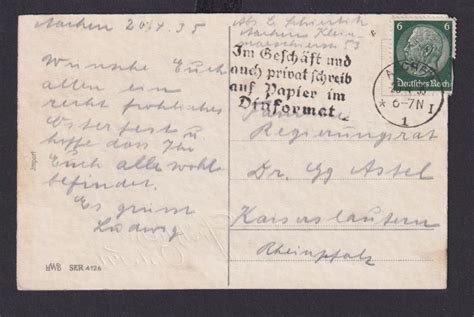 Aachen 20.4.35
Wünsche Euch
allen ein
recht fröhliches
Osterfest u.
hoffe dass Ihr
Euch alle wohl
befindet.
Es grüsst
Ludwig
Import
HWB SER 4126
Abs. L.
Aachen
53
Im Geschäft und
auch privat schreib
auf Papier im
Dinformat
6 6
Deutsches Reich
6-7N I
1
Regierungsrat
Dr. Gg Astel
Kaiserslautern
Rheinpfalz